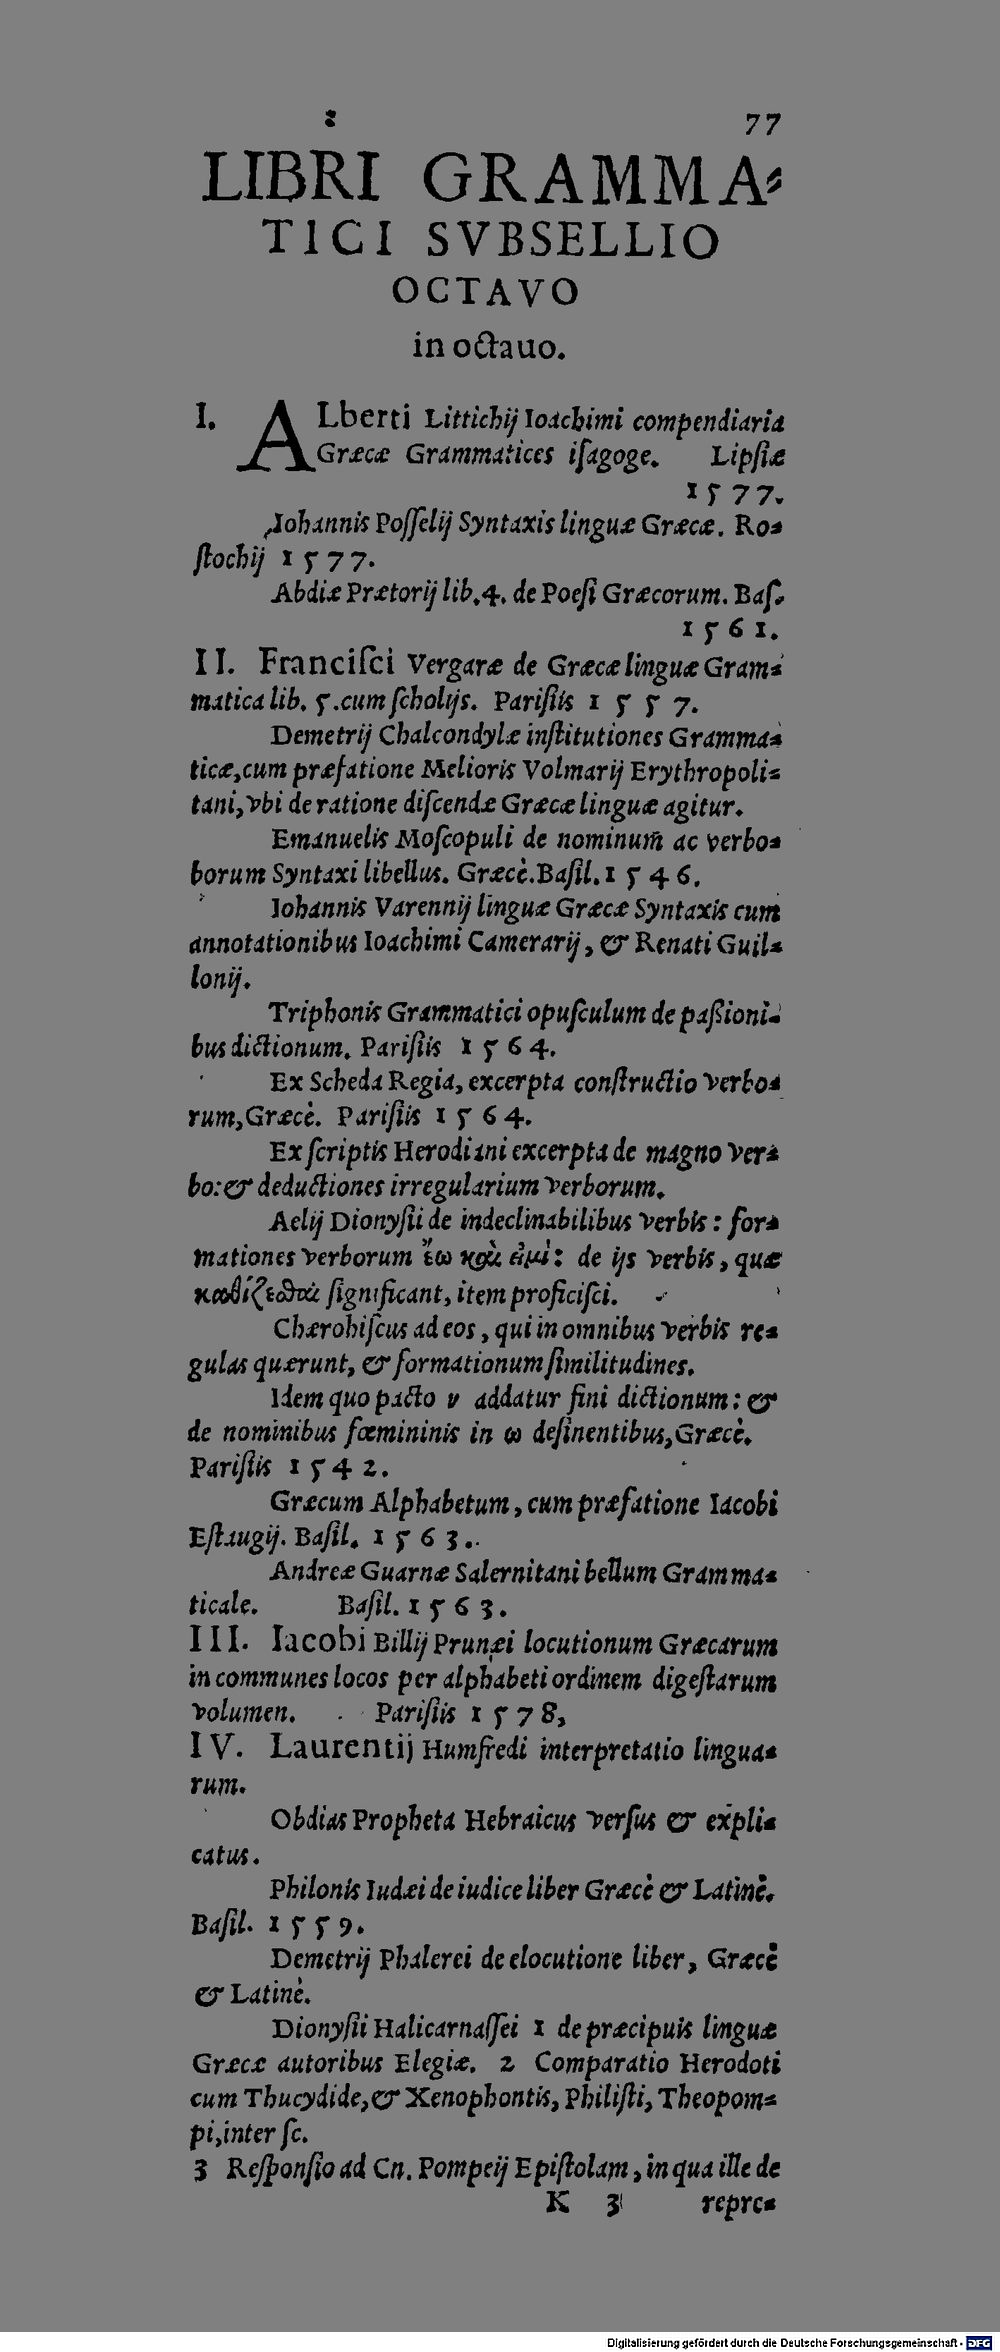 77
LIBRI GRAMMA-
TICI SVBSELLIO
OCTAVO
in octauo.
I. ALberti Littichij Ioachimi compendiaria
Græcæ Grammatices iſagoge. Lipſiæ
1577.
Iohannis Poſſelij Syntaxis linguæ Græcæ. Ro-
ſtochij 1577.
Abdiæ Prætorij lib. 4. de Poeſi Græcorum. Baſ.
1561.
II. Franciſci Vergaræ de Græcæ linguæ Gram-
matica lib. 5. cum ſcholijs. Pariſiis 1557.
Demetrij Chalcondylæ inſtitutiones Gramma-
ticæ, cum præfatione Melioris Volmarij Erythropoli-
tani, vbi de ratione diſcendæ Græcæ linguæ agitur.
Emanuelis Moſcopuli de nominum ac verbo-
borum Syntaxi libellus. Græcè. Baſil. 1546.
Iohannis Varennij linguæ Græcæ Syntaxis cum
annotationibus Ioachimi Camerarij, & Renati Guil-
lonij.
Triphonis Grammatici opuſculum de paſsioni-
bus dictionum. Pariſiis 1564.
Ex Scheda Regia, excerpta conſtructio verbo-
rum, Græcè. Pariſiis 1564.
Ex ſcriptis Herodiani excerpta de magno ver-
bo: & deductiones irregularium verborum.
Aelij Dionyſii de indeclinabilibus verbis: for-
mationes verborum ἔω καὶ εἰμὶ: de ijs verbis, quæ
καθίζεσθαι ſignificant, item proficiſci.
Chærobiſcus ad eos, qui in omnibus verbis re-
gulas quærunt, & formationum ſimilitudines.
Idem quo pacto ν addatur fini dictionum: &
de nominibus fœmininis in ω deſinentibus, Græcè.
Pariſiis 1542.
Græcum Alphabetum, cum præfatione Iacobi
Eſtaugij. Baſil. 1563.
Andreæ Guarnæ Salernitani bellum Gramma-
ticale. Baſil. 1563.
III. Iacobi Billij Prunæi locutionum Græcarum
in communes locos per alphabeti ordinem digeſtarum
volumen. Pariſiis 1578,
IV. Laurentij Humfredi interpretatio lingua-
rum.
Obdias Propheta Hebraicus verſus & expli-
catus.
Philonis Iudæi de iudice liber Græcè & Latinè.
Baſil. 1559.
Demetrij Phalerei de elocutione liber, Græcè
& Latinè.
Dionyſii Halicarnaſſei 1 de præcipuis linguæ
Græcæ autoribus Elegiæ. 2 Comparatio Herodoti
cum Thucydide, & Xenophontis, Philiſti, Theopom-
pi, inter ſc.
3 Reſponſio ad Cn. Pompeij Epiſtolam, in qua ille de
K 3 repre-
Digitalisierung gefördert durch die Deutsche Forschungsgemeinschaft - DFG